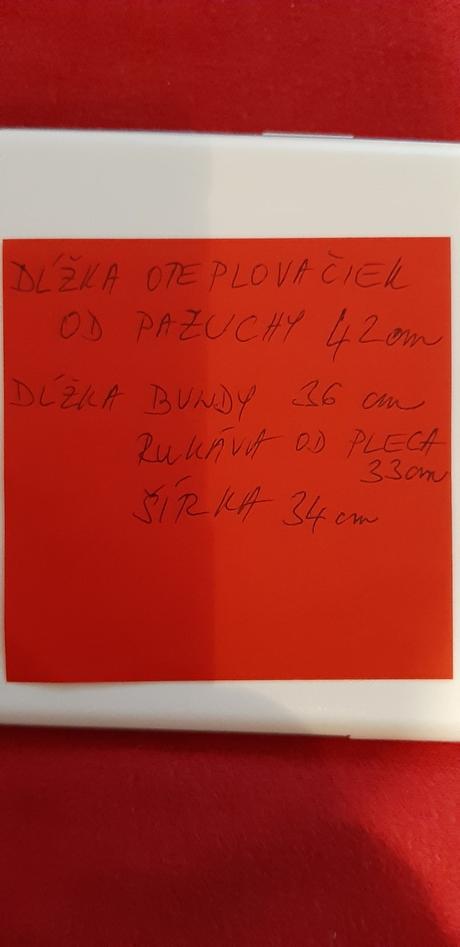 DĹŽKA OTEPLOVAČIEK
OD PAZUCHY 42cm
DĹŽKA BUNDY 36 cm
RUKÁVA OD PLECA
33cm
ŠÍRKA 34cm